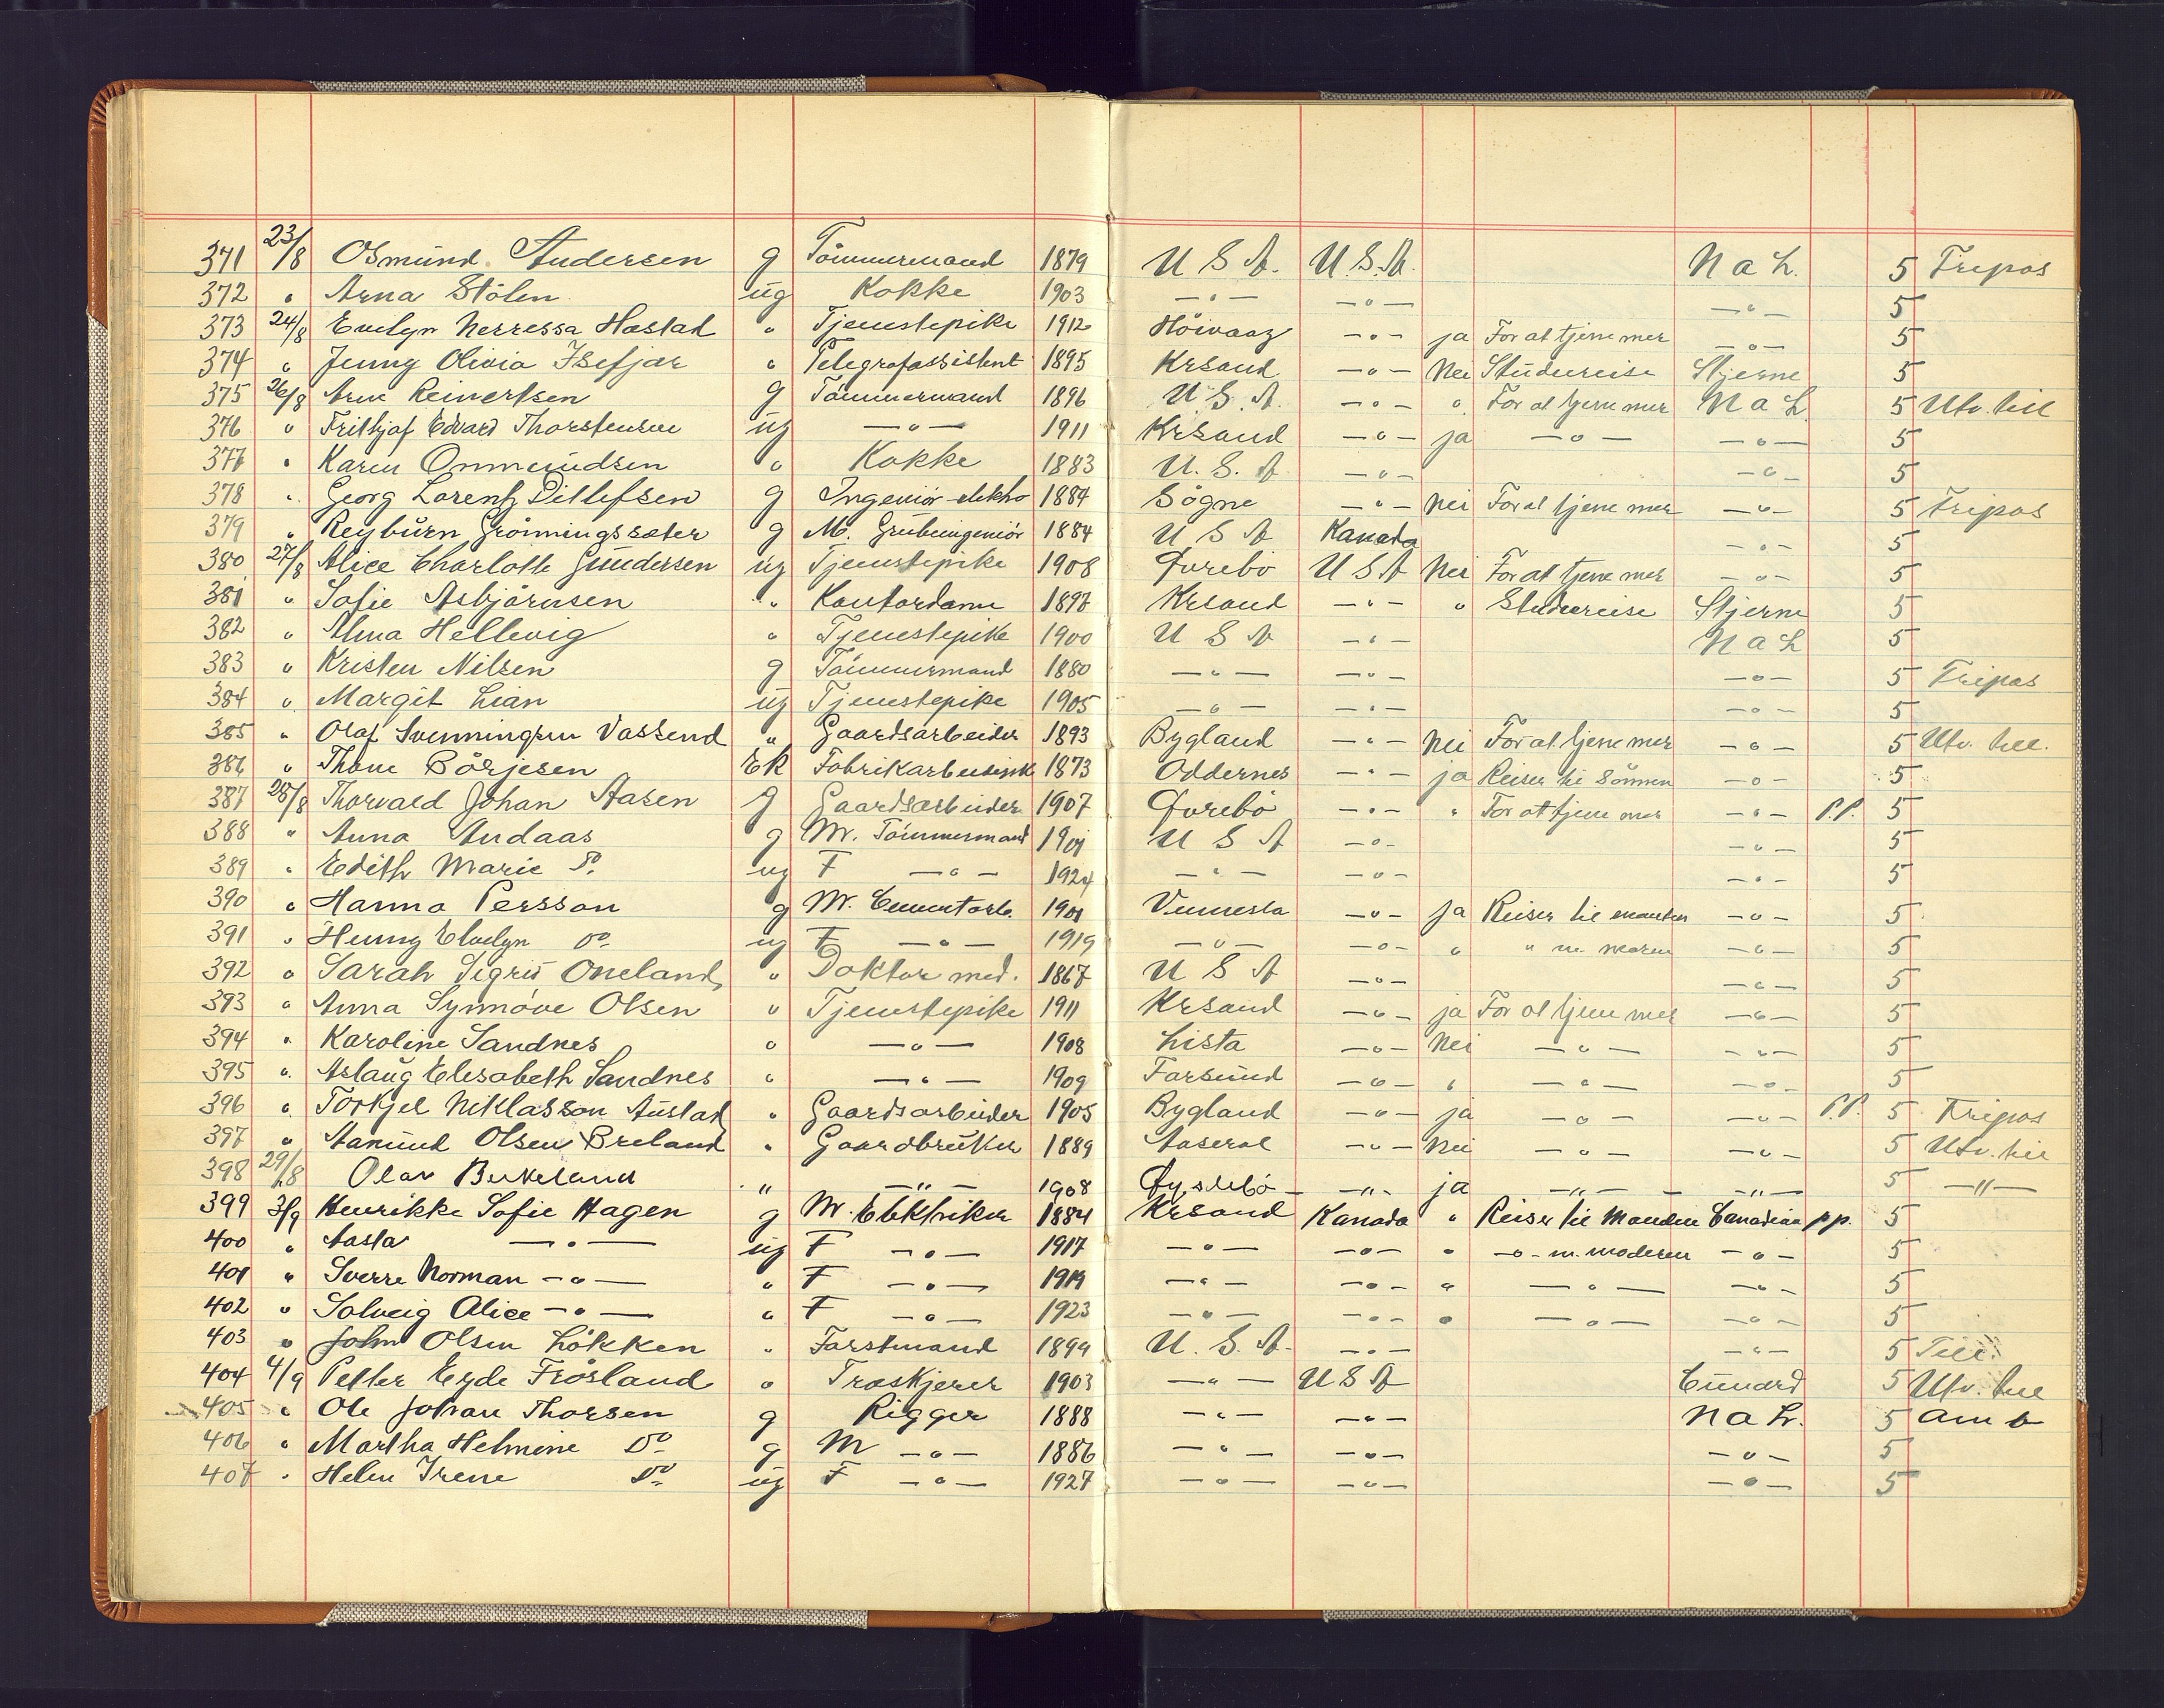 371 23/8 Osmund Andersen g Tömmermand 1879 U S A. U.S.A. N a L. 5 Fripas
372 " Arna Stölen ug Kokke 1903 —"— —"— —"— 5
373 24/8 Evelyn Nerressa Hastad " Tjenestepike 1912 Höivaag —"— ja For at tjene mer —"— 5
374 " Jenny Olivia Isefjær " Telegrafassistent 1895 Krsand —"— Nei Studiereise Stjerne 5
375 26/8 Arne Reinertsen g Tömmermand 1896 U.S.A. —"— " For at tjene mer N a L 5 Utv. till
376 " Frithjof Edvard Thorstensen ug —"— 1911 Krsand —"— ja —"— —"— 5
377 " Karen Onmundsen " Kokke 1883 U.S.A —"— —"— 5
378 " Georg Lorentz Ditlefsen g Ingeniör-elektro 1884 Sögne —"— Nei For at tjene mer —"— 5 Fripas
379 " Reyburn Grönningssæter g M. Grubeingeniör 1884 U S A Kanada —"— 5
380 27/8 Alice Charlotte Gundersen ug Tjenestepike 1908 Øvrebö U S A Nei For at tjene mer —"— 5
381 " Sofie Asbjörnsen " Kontordame 1897 Krsand —"— " Studiereise Stjerne 5
382 " Alma Hellevig " Tjenestepike 1900 U S A —"— N a L 5
383 " Kristen Nilsen g Tömmermand 1880 —"— —"— —"— 5 Fripas
384 " Margit Lian ug Tjenestepike 1905 —"— —"— —"— 5
385 " Olaf Svenningsen Vassend " Gaardsarbeider 1893 Bygland —"— Nei For at tjene mer —"— 5 Utv. till.
386 " Thone Börjesen Ek Fabrikarbeiderske 1873 Oddernes —"— ja Reiser til Sönnen —"— 5
387 28/8 Thorvald Johan Aasen g Gaardsarbeider 1907 Øvrebö —"— " For at tjene mer —"— P.P. 5
388 " Anna Andaas g M. Tömmermand 1901 U S A —"— —"— 5
389 " Edith Marie Do ug F —"— 1924 —"— —"— —"— 5
390 " Hanna Persson g M. Cementarb. 1901 Vennesla —"— Ja Reiser til manden —"— 5
391 " Henny Evelyn Do ug F —"— 1919 —"— —"— " " m. moren —"— 5
392 " Sarah Sigrid Oneland " Doktor med. 1867 U S A —"— —"— 5
393 " Anna Synnöve Olsen " Tjenestepike 1911 Krsand —"— ja For at tjene mer —"— 5
394 " Karoline Sandnes " —"— 1908 Lista —"— Nei —"— —"— 5
395 " Aslaug Elisabeth Sandnes " —"— 1909 Farsund —"— " —"— —"— 5
396 " Torkjel Niklasson Austad " Gaardsarbeider 1905 Bygland —"— ja —"— —"— P.P. 5 Fripas
397 " Aanund Olsen Breland " Gaardbruker 1889 Aaseral —"— Nei —"— —"— 5 Utv. till
398 29/8 Olav Birkeland " —"— 1908 Øyslebö —"— ja —"— —"— 5 —"—
399 3/9 Henrikke Sofie Hagen g M. Elektriker 1884 Krsand Kanada " Reiser til Manden Canadian pp. 5
400 " Aasta —"— ug F —"— 1917 —"— —"— " —"— m. moderen —"— 5
401 " Sverre Norman —"— " F —"— 1919 —"— —"— " —"— —"— 5
402 " Solveig Alice —"— " F —"— 1923 —"— —"— " —"— —"— 5
403 " John Olsen Lökken " Forstmand 1899 U.S.A. —"— —"— 5 Till.
404 4/9 Petter Eyde Frösland " Træskjerer 1903 —"— U S A Cunard 5 Utv. till
405 " Ole Johan Thorsen g Rigger 1888 —"— —"— N a L. 5 am b
406 " Martha Helmine Do g M —"— 1886 —"— —"— —"— 5
407 " Helen Irene Do ug F —"— 1927 —"— —"— —"— 5